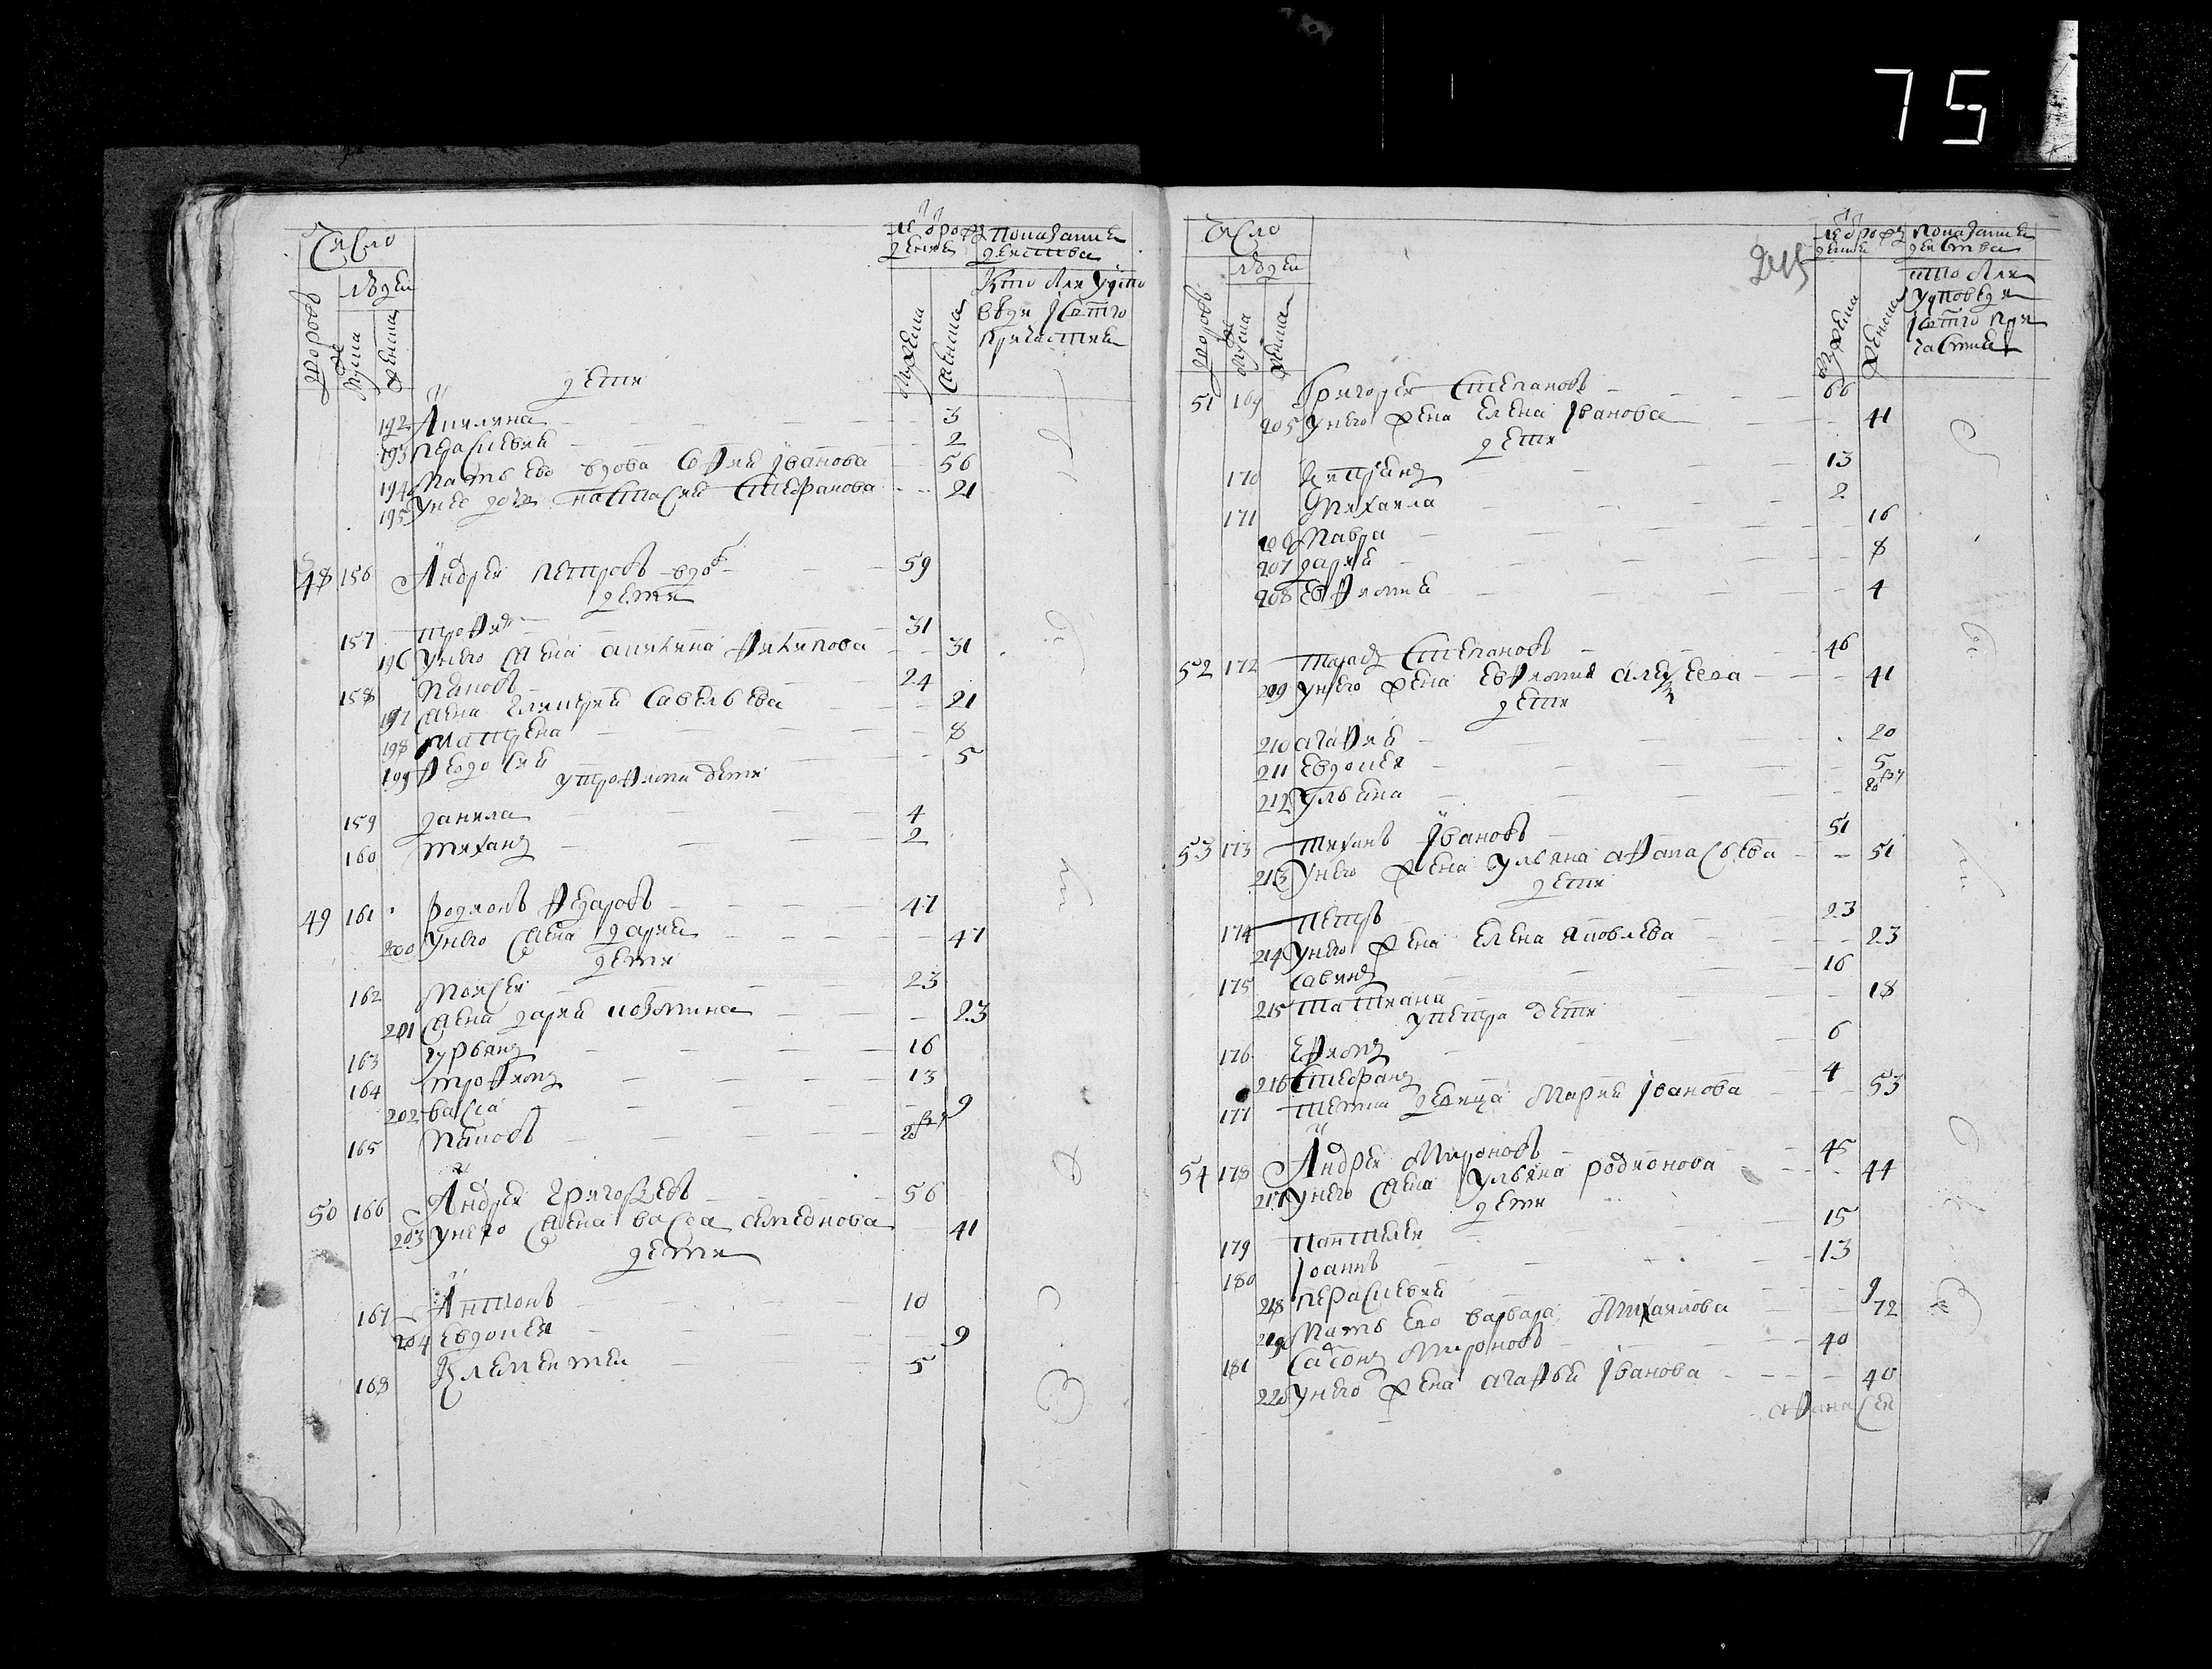 75
Число
людей
дворовъ
мужска
женска
лѣ от рожденїя
мужеска
женска
Показанїе действа
Кто был у исповеди и святого причастия
дети
192 Акилина 3
193 Парасковья 2
194 Мать ево вдова Софья Иванова 56
195 У нее дочь Настасья Стефанова 21
48 156 Андрей Петровъ вдовъ 59
дети
157 Трофимъ 31
196 У него жена Акилина Филипова 31
158 Яковъ 24
197 Жена Гликерья Савельева 21
198 Матрена 8
199 Федосья 5
у Трофима дети
159 Данила 4
160 Тиханъ 2
49 161 Родионъ Федоровъ 47
200 У него жена Дарья 47
дети
162 Моисей 23
201 Жена Дарья Козмина 23
163 Гурьянъ 16
164 Трофимъ 13
202 Васса 9
165 Яковъ
50 166 Андрей Григорьевъ 56
203 У него жена Васса Семенова 41
дети
167 Антонъ 10
204 Евдокея 9
168 Клементей 5
Число
людей
дворовъ
мужска
женска
лѣ от рожденїя
мужеска
женска
Показанїе действа
кто былъ у исповеди и святого причастия
245
51 169 Григорей Степановъ 66
205 У него жена Елена Иванова 41
дети
170 Киприянъ 13
171 Михаила 2
206 Мавра 16
207 Дарья 8
208 Евфимия 4
52 172 Тарасъ Степановъ 46
209 У него жена Евфимия Алексеева 41
дети
210 Агафья 20
211 Евдокея 5
212 Ульяна
53 173 Тиханъ Ивановъ 51
213 У него жена Ульяна Афанасьева 51
дети
174 Петръ 23
214 У него жена Елена Яковлева 23
175 Савинъ 16
215 Татиана 18
у Петра дети
176 Ефимъ 6
216 Стефанъ 4
177 Тетка девица Марья Иванова 53
54 178 Андрей Мироновъ 45
217 У него жена Ульяна Родионова 44
дети
179 Пантелей 15
180 Иоаннъ 13
218 Парасковья 9
219 Мать ево Варвара Михаилова 72
181 Сафонъ Мироновъ 40
220 У него жена Агафья Иванова 40
Афанасей